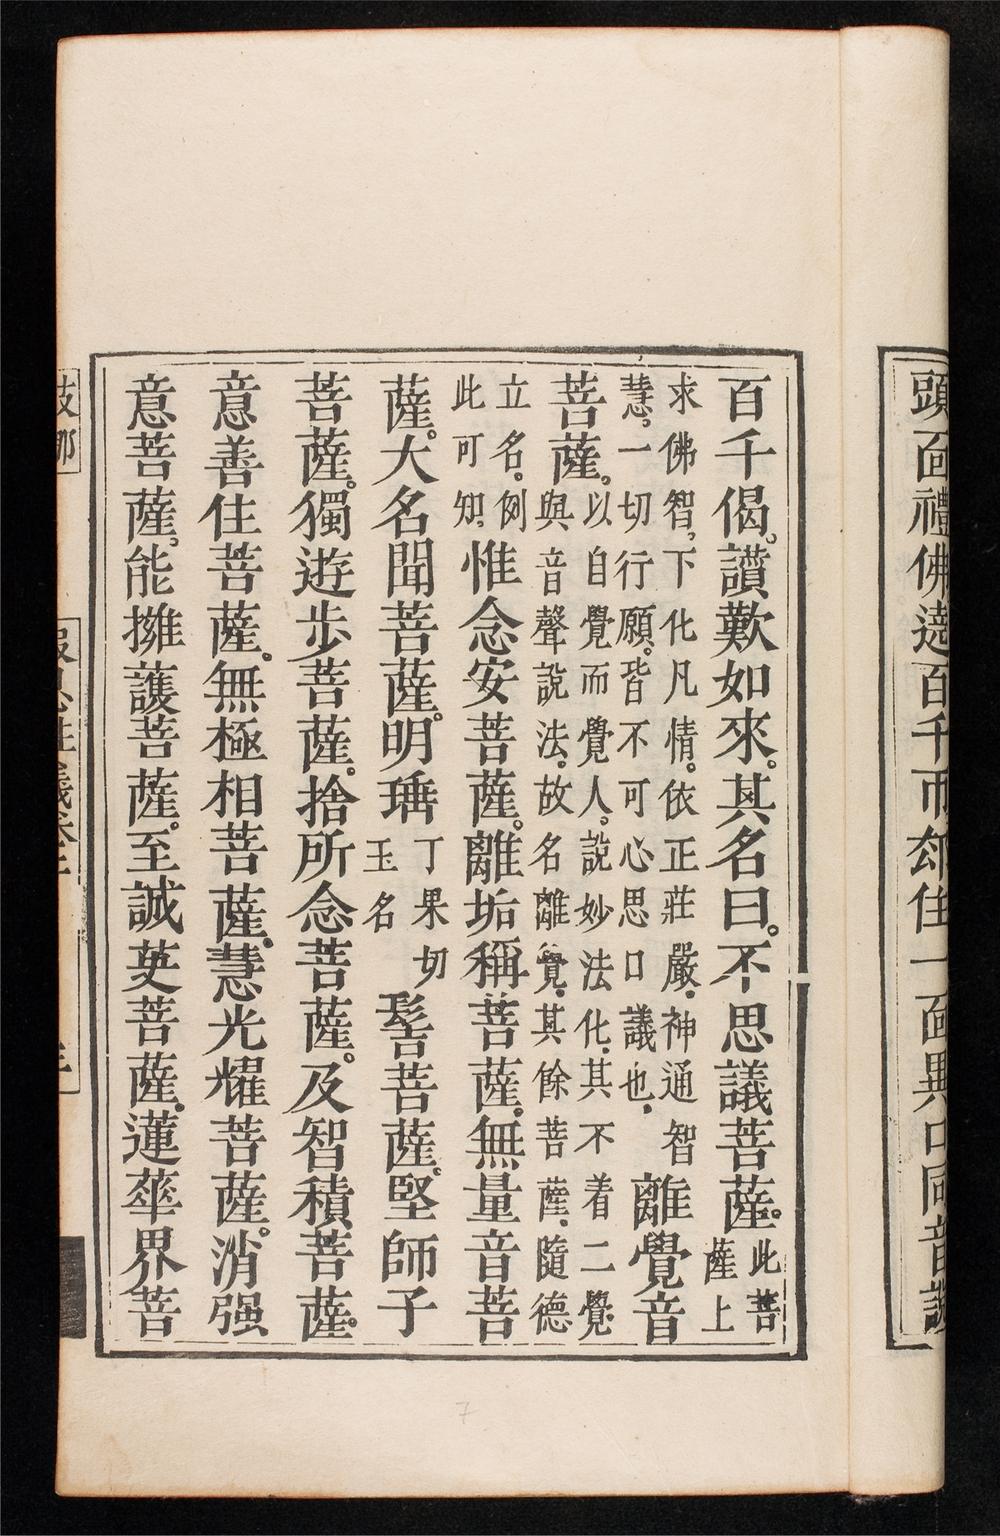 頭面禮佛遶百千帀却住一面異口同音說
百千偈。讚歎如來。其名曰。不思議菩薩。此菩薩上
求佛智，下化凡情。依正莊嚴，神通智慧。一切行願。皆不可心思口議也，離覺音
菩薩。以自覺而覺人。說妙法化，其不着二覺與音聲說法。故名離覺，其餘菩薩，隨德
立名。例此可知，惟念安菩薩。離垢稱菩薩。無量音菩
薩。大名聞菩薩。明㻔丁果切玉名髻菩薩。堅師子
菩薩。獨遊步菩薩。捨所念菩薩。及智積菩薩。
意善住菩薩。無極相菩薩。慧光耀菩薩。消强
意菩薩，能擁護菩薩。至誠英菩薩。蓮華界菩
7